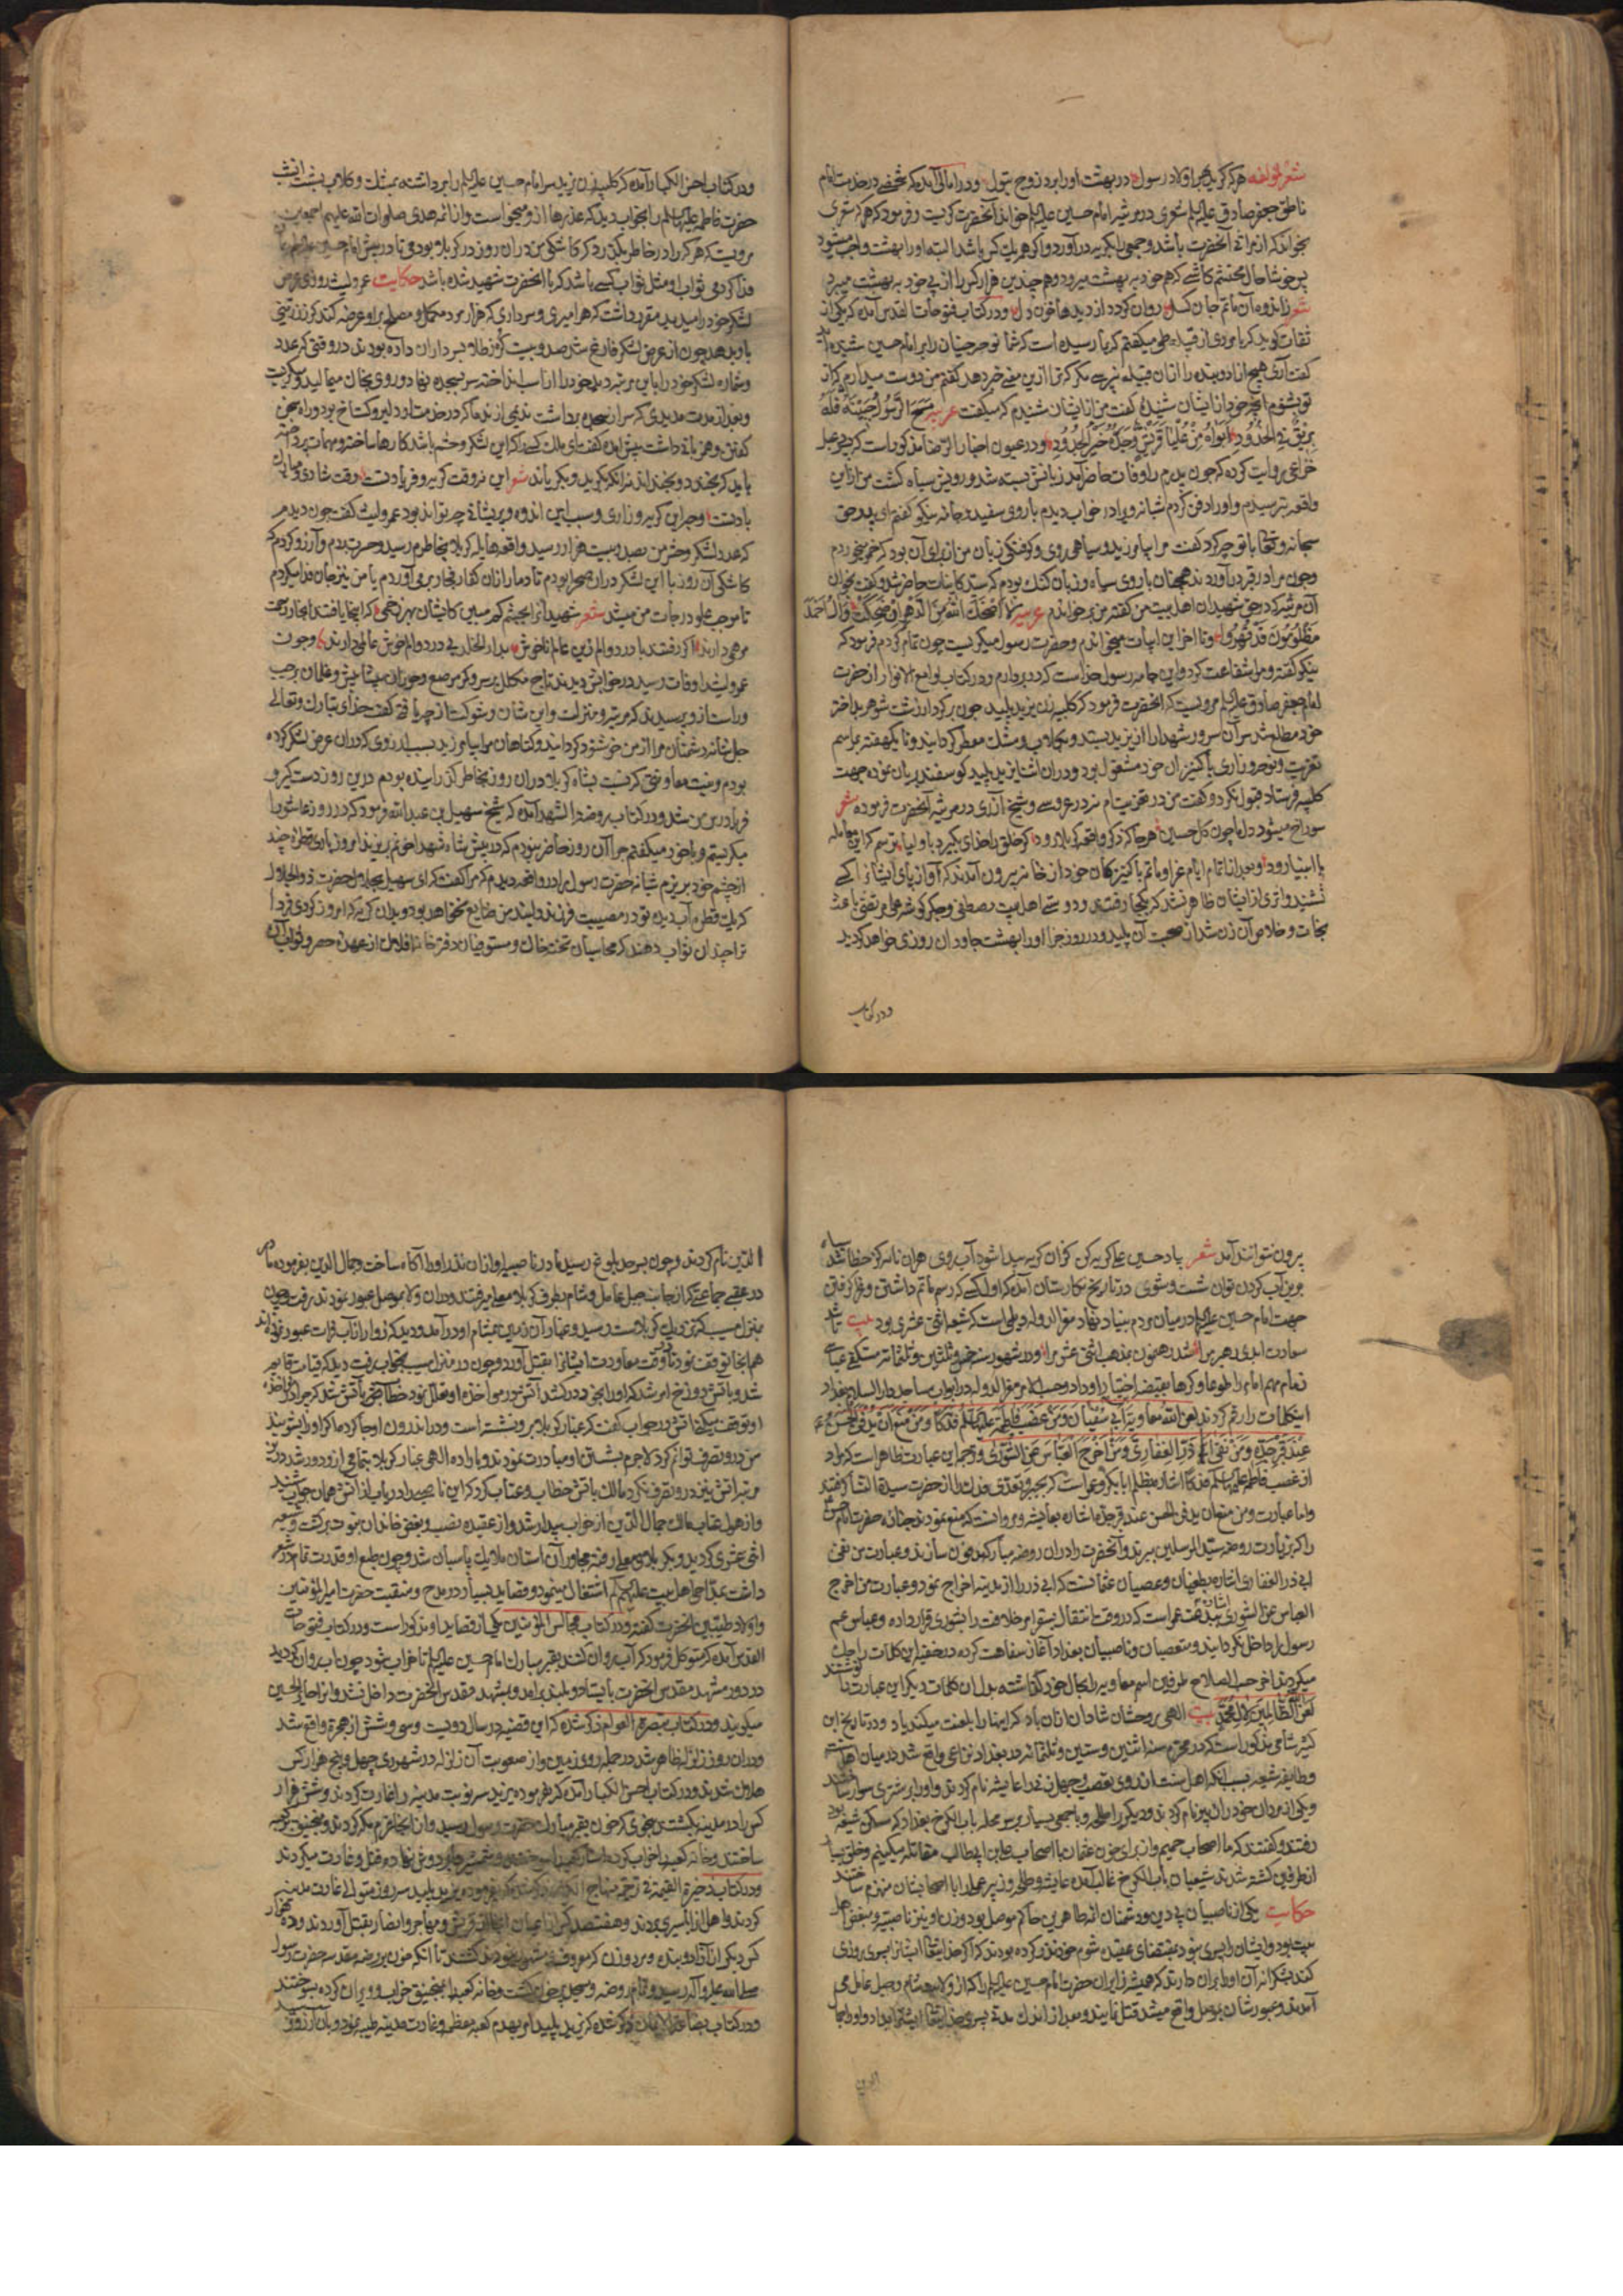 شعر لمؤلفه هر که گرید بهر اولاد رسول در بهشت اورا برد زوج بتول ودر امالی آمده که شخصی در خدمت امام
ناطق جعفر صادق علیه السلام شعری در مرثیه امام حسین علیه السلام خواند آنحضرت گریست و فرمود که هر که شعری
بخواند که از مراثی آنحضرت باشد و جمعی را بگریه در آورد و اگر همه یک کس باشد البته اورا بهشت واجب میشود
پس خوشا حال محتشم کاشی که هم خود به بهشت میرود و هم چندین هزار کس را از پی خود به بهشت میبرد
شعر زاندوه آن ماتم جان گسل روان گردد از دیدها خون دل ودر کتاب فتوحات القدس آمده که یکی از
ثقات گوید که با مردی از قبیله طی میگفتم که بما رسیده است که شما نوحه جنیان را بر امام حسین شنیده اید
گفت آری هیچ آزاد و بنده را از آن قبیله نپرسی مگر که ترا ازین معنی خبر دهد گفتم من دوست میدارم که از
تو بشنوم آنچه خود از ایشان شنیده گفت من از ایشان شنیدم که میگفت عربیه مسح الرسول جبینه فله
بریق فی الخدود ابواه من علیا قریش وجده خیر الجدود ودر عیون اخبار الرضا مذکور است که دعبل
خزاعی روایت کرده که چون پدرم را وفات حاضر آمد زبانش بسته شد و رویش سیاه گشت من از این
واقعه بترسیدم و اورا دفن کردم شبانه ویرا در خواب دیدم با روی سفید و جامه نیکو گفتم ای پدر حق
سبحانه وتعالی با تو چه کرد گفت مرا بیامرزید و سیاهی روی و گرفتگی زبان من از برای آن بود که خمر میخوردم
وچون مرا در قبر در آوردند همچنان با روی سیاه و زبان گنگ بودم که سید کاینات حاضر شد و گفت بخوان
آن مرثیه که در حق شهیدان اهل بیت من گفته من بر خواندم عربیه لا اضحک الله سن الدهر ان ضحکت وآل احمد
مظلومون قد قهروا وتا آخر این ابیات میخواندم و حضرت رسول میگریست چون تمام کردم فرمود که
نیکو گفته و مرا شفاعت کرد و این جامه رسول خداست که در بر دارم ودر کتاب لوامع الانوار از حضرت
امام جعفر صادق علیه السلام مرویست که آنحضرت فرمود که کلبیه زن یزید پلید چون بر کردار زشت شوهر بد اختر
خود مطلع شد سر آن سرور شهدا را از یزید بستد و بگلاب و مشک معطر گردانید و تا یکهفته بمراسم
تعزیت و نوحه و زاری با کنیزان خود مشغول بود ودر آن اثنا یزید پلید گوسفند بریان نموده جهت
کلبیه فرستاد قبول نکرد و گفت من در تعزیتم نه در عروسی و شیخ آذری در مرثیه آنحضرت فرموده شعر
سوراخ میشود دل ما چون گل حسین هر جا که ذکر واقعه کربلا رود گر خلق را خدای بگیرد باولیا ترسم که این معامله
با انبیا رود و بعد از اتمام ایام عزا و ماتم با کنیزکان خود از خانه بیرون آمدند که آواز پای ایشانرا کسی
نشنید و اثری از ایشان ظاهر نشد که بکجا رفتند و دوستی اهل بیت مصطفی و جگر گوشه علی مرتضی باعث
نجات و خلاص آن زن شد از صحبت آن پلید ودر روز جزا اورا بهشت جاودان روزی خواهد گردید
ودر کتاب
ودر کتاب احسن الکبار آمده که کلبیه زن یزید سر امام حسین علیه السلام را برداشته بمشک و گلاب بشست آنشب
حضرت فاطمه علیها السلام را بخواب دید که عذرها ازو میخواست و از ائمه هدی صلوات الله علیهم اجمعین
مرویست که هر که را در خاطر بگذرد که کاشکی من در آن روز در کربلا بودمی تا در پیش امام حسین علیه السلام جان
فدا کردمی ثواب او مثل ثواب کسی باشد که با آنحضرت شهید شده باشد حکایت عمرو لیث روزی عرض
لشکر خود را میدید مقرر داشت که هر امیری و سرداری که هزار مرد مکمل و مصلح برو عرضه کند گرز زرینی
باو بدهد چون از عرض لشکر فارغ شد صد و بیست گرز طلا بسرداران داده بودند در وقتی که عدد
و شماره لشکر خود را باین مرتبه دید خود را از اسب انداخته سر بسجده نهاد و روی بخاک میمالید و میگریست
و بعد از مدت مدیدی که سر از سجده برداشت ندیمی از ندما که در خدمتش دلیر و گستاخ بود و راه سخن
گفتن و هم زبانی داشت پیش آمده گفت ای ملک کسی را که این لشکر و حشم باشد کارها ساخته و مهمات پرداخته
باید که بخندد و بخنداند نه آنکه بگرید و بگریاند شعر این نه وقت گریه و فریاد تست وقت شادی و مبارک
بادتست وچه این گریه و زاری و سبب این اندوه و پریشانی چه تواند بود عمرو لیث گفت چون دیدم
که عدد لشکر و حشم من بصد و بیست هزار رسید واقعه هایله کربلا بخاطرم رسید و حسرت بردم و آرزو کردم که
کاشکی آن روز با این لشکر در آن صحرا بودم تا دمار از آن کفار فجار بر می آوردم یا من نیز جان فدا میکردم
تا موجب علو درجات من میشد شعر شهیدانرا بچشم کم مبین کایشان بهر زخمی که اینجا یافتند آنجا راحت
مرهمی دارند اگر رفتند با درد و الم زین عالم ناخوش بدار الخلد بی درد و الم خوش عالمی دارند وچون
عمرو لیث را وفات رسید در خوابش دیدند تاج مکلل بر سر و کمر مرصع و حوریان پیشاپیش و غلمان بر چپ
و راست ازو پرسیدند که مرتبه و منزلت و این شان و شوکت از چه یافتی گفت خدای تبارک وتعالی
جل شانه دشمنان مرا از من خوشنود گردانید و گناهان مرا بیامرزید بسبب آرزوی که در آن عرض لشکر کرده
بودم و نیت معاونتی که نسبت بشاه کربلا در آن روز بخاطر گذرانیده بودم درین روز دستگیر و
فریادرس من شد ودر کتاب روضة الشهدا آمده که شیخ سهیل بن عبدالله فرمود که در روز عاشورا
میگریستم و باخود میگفتم چرا آن روز حاضر نبودم که در پیش شاه شهدا خونم بریزند امروز باری قطره چند
از چشم خود بریزم شبانه حضرت رسول را در واقعه دیدم که مرا گفت که ای سهیل بجلال حضرت ذوالجلال
که یک قطره آب دیده تو در مصیبت فرزند دلبند من ضایع نخواهد بود و بدان گریه که امروز کردی فردا
ترا چندان ثواب دهند که محاسبان تخته خاک و مستوفیان دفترخانه افلاک از عهده حصر و ثواب آن
بیرون نتوانند آمد شعر بیاد حسین علی گریه کن کزان گریه پیدا شود آب روی هر آن نامه کز خطا شد سیاه
بدین آب کردن توان شست و شوی در تاریخ نگارستان آمده که اول کسی که رسم ماتم داشتن و غم گرفتن
جهت امام حسین علیه السلام در میان مردم بنیاد نهاد معز الدوله دیلمی است که شیعه اثنی عشری بود بیت تا شد
سعادت ابدی رهبرش شد رهنمون بمذهب اثنی عشر مرا ودر شهور سنه خمس و ثلثین و ثلثمائه مستکفی عباسی
زمام مهام انام را طوعا و کرها بقبضه اختیار او داد و حسب الامر معز الدوله در ابواب مساجد دار السلام بغداد
اینکلمات را رقم کردند لعن الله معاویة ابی سفیان ومن غصب فاطمة علیها السلام فدکا ومن منع ان یدفن الحسن
عند قبر جده ومن نفی ابا ذر الغفاری ومن اخرج العباس عن الشوری و ترجمه این عبارت ظاهر است که مراد
از غصب فاطمة علیها السلام فدکا اشاره بظلم ابابکر و عمر است که بجبر و تعدی فدک را از حضرت سیدة النسا گرفتند
و اما عبارت ومن منع ان یدفن الحسن عند قبر جده اشاره بعایشه و مروانست که منع نمودند جنازه حضرت امام حسن
را که بزیارت روضه سید المرسلین ببرند و آنحضرت را در آن روضه مبارکه مدفون سازند و عبارت من نفی
ابی ذر الغفاری اشاره بطغیان و عصیان عثمانست که ابی ذر را از مدینه اخراج نمود و عبارت من اخرج
العباس عن الشوری اشارتست ببدعت عمر است که در وقت انتقال بشوم امر خلافت را بشوری قرار داده و عباس عم
رسول را داخل نگردانید و متعصبان و ناصبیان بغداد آغاز سفاهت کرده در خفیه این کلمات را حک
میکردند آخر حسب الصلاح طرفین اسم معاویه را بحال خود گذاشته بدل آن کلمات دیگر این عبارت نوشتند
لعن الله الظالمین لآل محمد بیت الهی بروحشان شادان آن باد که اینها را بلعنت میکند یاد ودر تاریخ ابن
کثیر شامی مذکور است که در محرم سنه اثنین و ستین و ثلثمائه در بغداد نزاعی واقع شد در میان اهل سنت
و طایفه شیعه بسبب آنکه اهل سنت از روی تعصب و جهل زنی را عایشه نام کردند و اورا بر شتری سوار ساختند
و یکی از مردان خود را زبیر نام کردند و دیگری را طلحه و با جمعی بسیار بر سر محله باب الکرخ بغداد که مسکن شیعه بود
رفتند و گفتند که ما اصحاب جملیم و از برای خون عثمان با اصحاب علی بن ابیطالب مقاتله میکنیم و خلق بسیار
از طرفین کشته شدند شیعیان باب الکرخ غالب آمده عایشه و طلحه و زبیر عملی را با اصحابشان منهزم ساختند
حکایت یکی از ناصبیان بی دین و دشمنان ائمه طاهرین حاکم موصل بود و زن او نیز ناصبیه و مبغض اهل
بیت بود و ایشان را پسری نبود بمقتضای عقیده شوم خود نذر کرده بودند که اگر خدایتعالی ایشانرا پسری روزی
کند بشکرانه آن او را بر آن دارند که همیشه زایران حضرت امام حسین علیه السلام را که از ولایت شام و جبل عامل می
آمدند و عبورشان بموصل واقع میشد قتل نمایند و بعد از اندک مدتی پسری خدایتعالی ایشانرا بداد و اورا جمال
الدین
الدین نام کردند و چون بسر حد بلوغ رسید مادر ناصبیه او از آن نذر اورا آگاه ساخت و جمال الدین بفرموده مادر
در عقب جماعتی که از جانب جبل عامل و شام بطرف کربلا معلی میرفتند و در آن ولا بموصل عبور نمودند برفت چون
بمنزل مسیب که نزدیک کربلاست رسید و غبار آن زمین بمشام او در آمد و دید که زوار از آب فرات عبور نموده اند
همانجا توقف نمود تا در وقت معاودت ایشانرا بقتل آورد و چون در منزل مسیب بخواب رفت دید که قیامت قایم
شد و بآتش دوزخ امر شد که اورا بخود در کشد آتش در مواخذه او تعلل نمود خطاب حق بآتش شد که چرا در مواخذه
او توقف میکنی آتش در جواب گفت که غبار کربلا برو نشسته است و در اندرون او جا کرده مگر اورا بشویند
من درو تصرف توانم کرد لاجرم بشستن او مبادرت نمودند و باراده الهی غبار کربلا بتمامی ازو دور شد درین
مرتبه آتش نیز درو تصرف نکرد مالک بآتش خطاب و عتاب کرد که این ناصبی را دریاب از آتش همان جواب شنید
و از هول عتاب مالک جمال الدین از خواب بیدار شد و از عقیده نصب و بغض خاندان نبوت برگشت و شیعه
اثنی عشری گردید و بکربلا معلی رفته مجاور آن آستان ملایک پاسبان شد و چون طبع او قدرت تمام در شعر
داشت بمداحی اهل بیت علیهم السلام اشتغال مینمود و قصاید بسیار در مدح و منقبت حضرت امیر المؤمنین
و اولاد طیبین آنحضرت گفته و در کتاب مجالس المؤمنین یکی از قصاید او مذکور است ودر کتاب فتوحات
القدس آمده که متوکل فرمود که آب روان کنند بقبر مبارک امام حسین علیه السلام تا خراب شود چون آب روان گردید
در دور مشهد مقدس آنحضرت بایستاد و بلند بر آمد و بمشهد مقدس آنحضرت داخل نشد و انرا حایر الحسین
میگویند ودر کتاب تبصرة العوام ذکر شده که این قضیه در سال دویست و سی و شش از هجرة واقع شد
ودر آن روز زلزله ظاهر شد در جمله روی زمین و از صعوبت آن زلزله در شهر ری چهل و پنج هزار کس
هلاک شدند ودر کتاب احسن الکبار آمده که بفرموده یزید سه نوبت مدینه را غارت کردند و شش هزار
کس را در مدینه بکشتند بنحوی که خون بقبر مبارک حضرت رسول رسید و از آنجا عزم مکه کردند و منجنیق بر کعبه
ساختند و خانه کعبه را خراب کرده استار کعبه را سوختند و شمشیرها بر دوش نهاده قتل و غارت میکردند
ودر کتاب ذخیرة القیمه فی ترجمة منهاج الکرامه آمده که بفرموده یزید پلید سه روز متوالی غارت مدینه
کردند و اهل آنرا اسیر بردند و هفتصد کس از اعیان قریش و مهاجر و انصار بقتل آوردند و ده هزار
کس دیگر از آزاد و بنده و مرد و زن که معروف و مشهور نبودند کشتند تا آنکه خون بروضه مقدسه حضرت رسول
صلی الله علیه و آله رسید و تمام روضه و مسجد پر خون گشت و خانه کعبه را بمنجنیق خراب و ویران کرده بسوختند
ودر کتاب ذکر شده که یزید پلید امر بهدم کعبه معظمه و غارت مدینه طیبه نمود و بآن آرزو